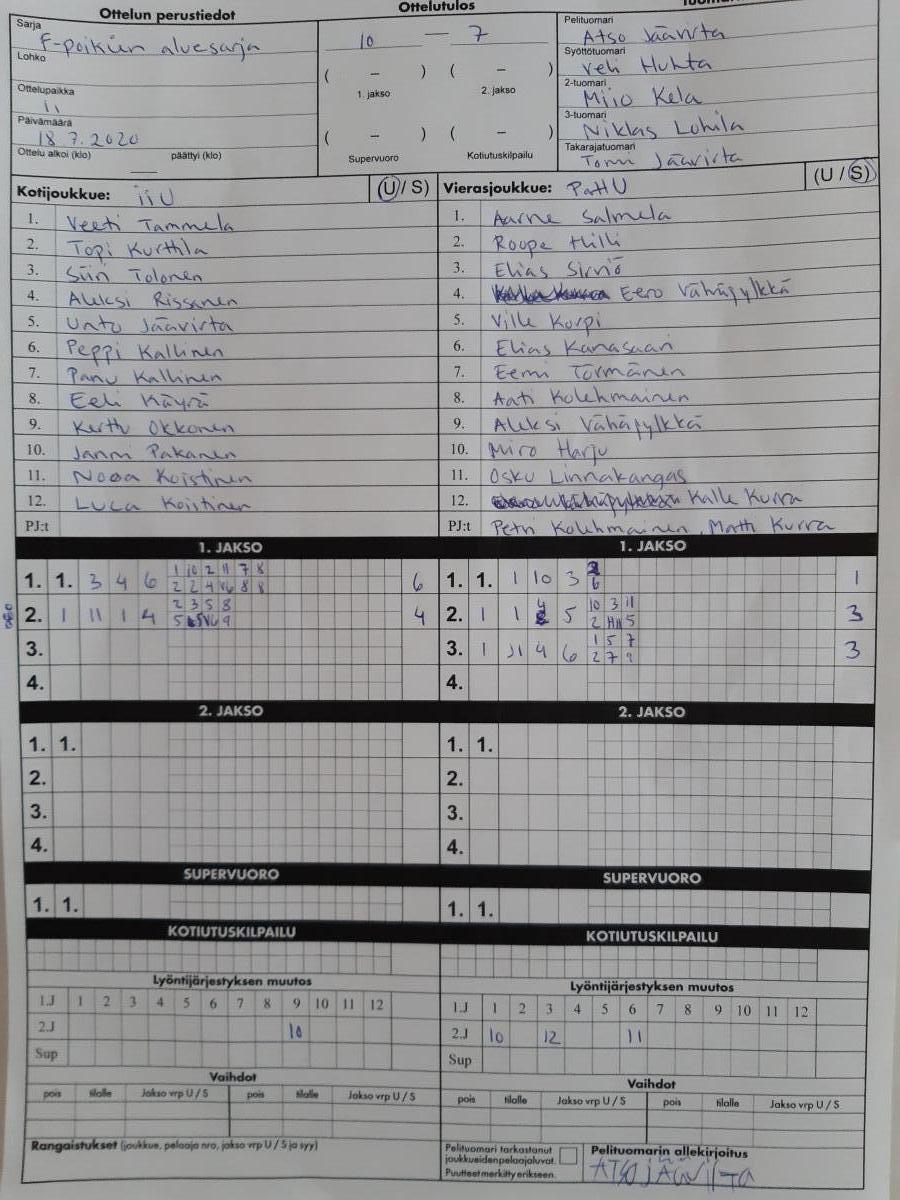 Ottelun perustiedot
Ottelutulos
Sarja
F-poikien aluesarja
Lohko
Ottelupaikka
Ii
Päivämäärä
18.7.2020
Ottelu alkoi (klo) päättyi (klo)
10 — 7
( – ) ( – )
1. jakso 2. jakso
( – ) ( – )
Supervuoro Kotiutuskilpailu
Pelituomari
Atso Jäävirta
Syöttötuomari
Veli Huhta
2-tuomari
Miio Kela
3-tuomari
Niklas Lohila
Takarajatuomari
Tomi Jäävirta
Kotijoukkue: iiU (U/S)
1. Veeti Tammela
2. Topi Kurttila
3. Siiri Tolonen
4. Aleksi Rissanen
5. Unto Jäävirta
6. Peppi Kallinen
7. Panu Kallinen
8. Eeli Käyrä
9. Kerttu Okkonen
10. Janni Pakanen
11. Nooa Koistinen
12. Luca Koistinen
PJ:t
Vierasjoukkue: PattU (U/S)
1. Aarne Salmela
2. Roope Hilli
3. Elias Sirviö
4. Eero Vähäpylkkä
5. Ville Korpi
6. Elias Kanasaari
7. Eemi Törmänen
8. Aati Kolehmainen
9. Aleksi Vähäpylkkä
10. Miro Harju
11. Osku Linnakangas
12. Kalle Kurra
PJ:t Petri Kolehmainen, Matti Kurra
1. JAKSO
1. 1. 3 4 6 1 10 2 11 7 8 6
2. 1 11 1 4 2 3 5 8 4
3.
4.
1. JAKSO
1. 1. 1 10 3 6 1
2. 1 1 4 5 10 3 11 3
3. 1 11 4 6 1 5 7 3
2 7 9
4.
2. JAKSO
1. 1.
2.
3.
4.
2. JAKSO
1. 1.
2.
3.
4.
SUPERVUORO
1. 1.
SUPERVUORO
1. 1.
KOTIUTUSKILPAILU
KOTIUTUSKILPAILU
Lyöntijärjestyksen muutos
1.J 1 2 3 4 5 6 7 8 9 10 11 12
2.J 10
Sup
Lyöntijärjestyksen muutos
1.J 1 2 3 4 5 6 7 8 9 10 11 12
2.J 10 12 11
Sup
Vaihdot
pois tilalle Jakso vrp U / S pois tilalle Jakso vrp U / S
Vaihdot
pois tilalle Jakso vrp U / S pois tilalle Jakso vrp U / S
Rangaistukset (joukkue, pelaaja nro, jakso vrp U / S ja syy)
Pelituomari tarkastanut
joukkueiden pelaajaluvat.
Puutteet merkitty erikseen.
Pelituomarin allekirjoitus
ATSO JÄÄVIRTA